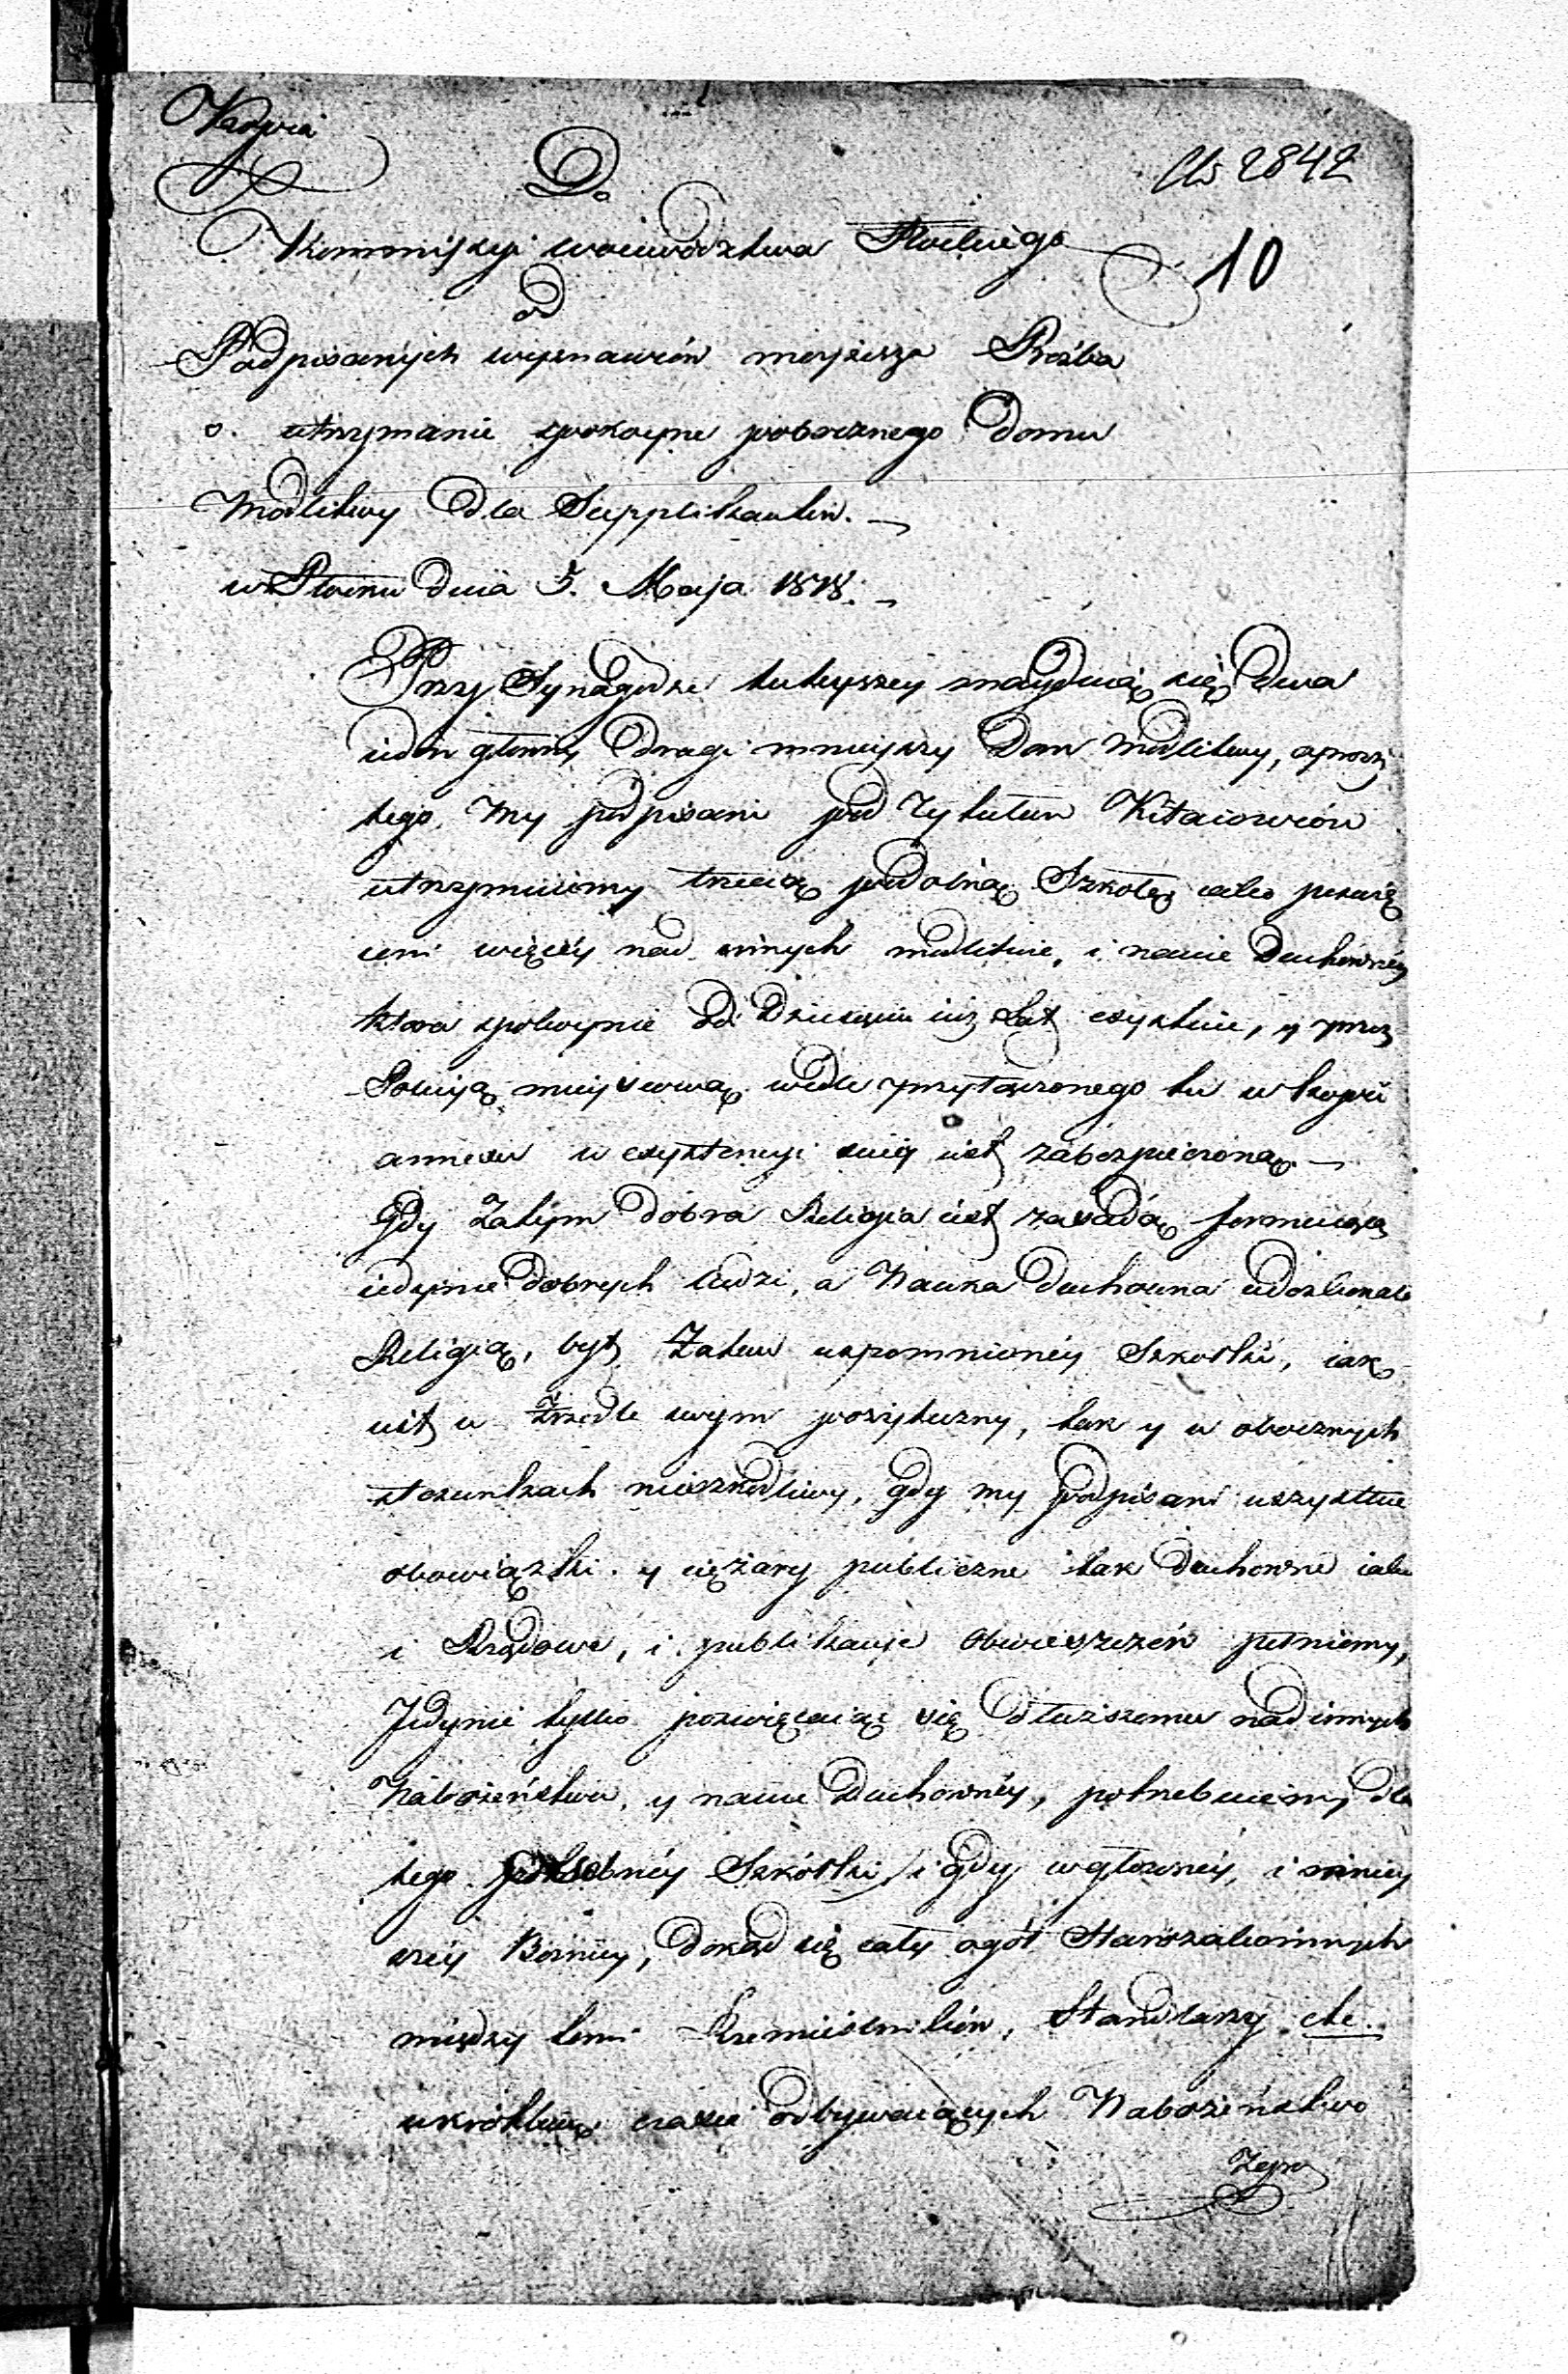 Kopia
Do
Ns 2842
Kommissyi woiewodztwa Płockiego
10
od
Podpisanych wyznawców mojżesza Prożba
o utrzymanie spokoyne pobocznego Domu
Modlitwy Dla Supplikantów.
w Płocku Dnia 5. Maja 1818.
Przy Synagodze tuteyszey znayduią się Dwa
ieden głowny Drugi mnieyszy Dom Modlitwy, oprocz
tego My podpisani pod Tytułem Kitaiowców
utrzymuiemy trzecią podobną Szkołę iako poswię
ceni więcéy nad innych modlitwie, i nauce Duchownéy
ktora spokoynie od Dziesięciu iuż Lat exystuie, y przez
Policyą mieyscową wedle przyłączonego tu w kopii
annexu w exystencyi swéy iest zabezpieczoną.
Gdy Zatym dobra Religia iest zasadą formuiącą
iedynie dobrych ludzi, a Nauka Duchowna udoskonala
Religią, byt Zatem wspomnionéy Szkołki, iak
iest w Źrzodle swym pożyteczny, tak y w obocznych
stosunkach nieszkodliwy, gdy my podpisani wszystkie
obowiązki y ciężary publiczne tak Duchowne iako
i Rządowe, i publikacye Obwieszczeń pełniemy,
Jedynie tylko poswięcaiąc się Dłuższemu nad innych
Nabożeństwu, y nauce Duchownéy, potrzebuiemy dla
tego osobnéy Szkółki, i gdy w głownéy, i mniey
széy Bożnicy, dokąd się cały ogół Starozakonnych
między temi Rzemieslników, Handlarzy etc.
w krótkim czasie odbywaiących Nabożeństwo